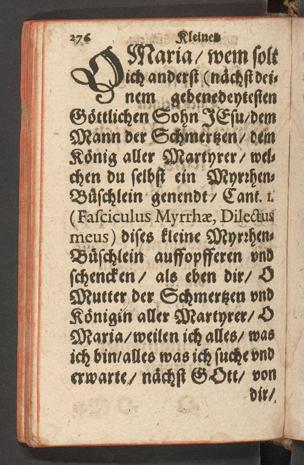 276 Kleines
O Maria/ wem solt
ich anderst (nächst dei-
nem gebenedeytesten
Göttlichen Sohn JEsu/ dem
Mann der Schmertzen/ dem
König aller Martyrer/ wel-
chen du selbst ein Myrrhen-
Büschlein genendt/ Cant. 1.
(Fasciculus Myrrhæ, Dilectus
meus) dises kleine Myrrhen-
Büschlein auffopfferen vnd
schencken/ als eben dir/ O
Mutter der Schmertzen vnd
Königin aller Martyrer/ O
Maria/ weilen ich alles/ was
ich bin/ alles was ich suche vnd
erwarte/ nächst GOtt/ von
dir/